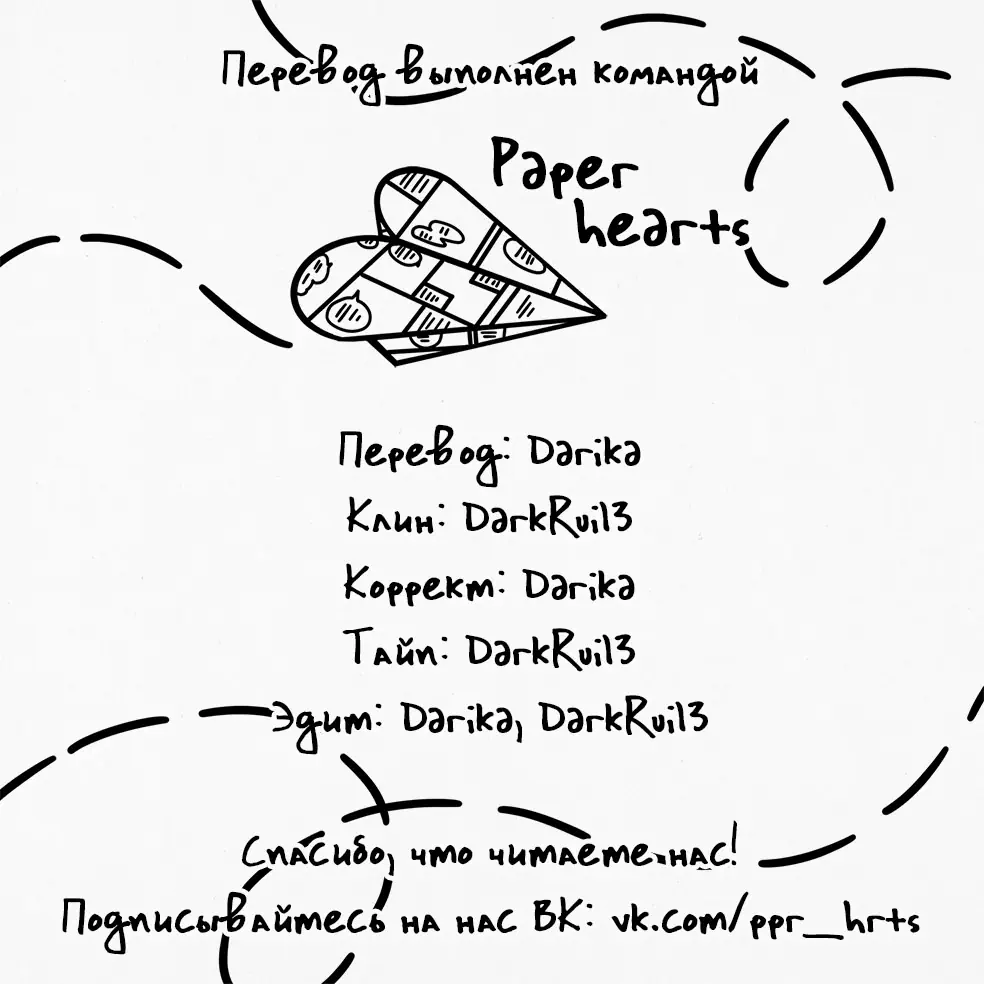 Перевод выполнен командой
Paper
hearts
Перевод: Darika
Клин: DarkRui13
Коррект: Darika
Тайп: DarkRui13
Эдит: Darika, DarkRui13
Спасибо, что читаете нас!
Подписывайтесь на нас ВК: vk.com/ppr__hrts